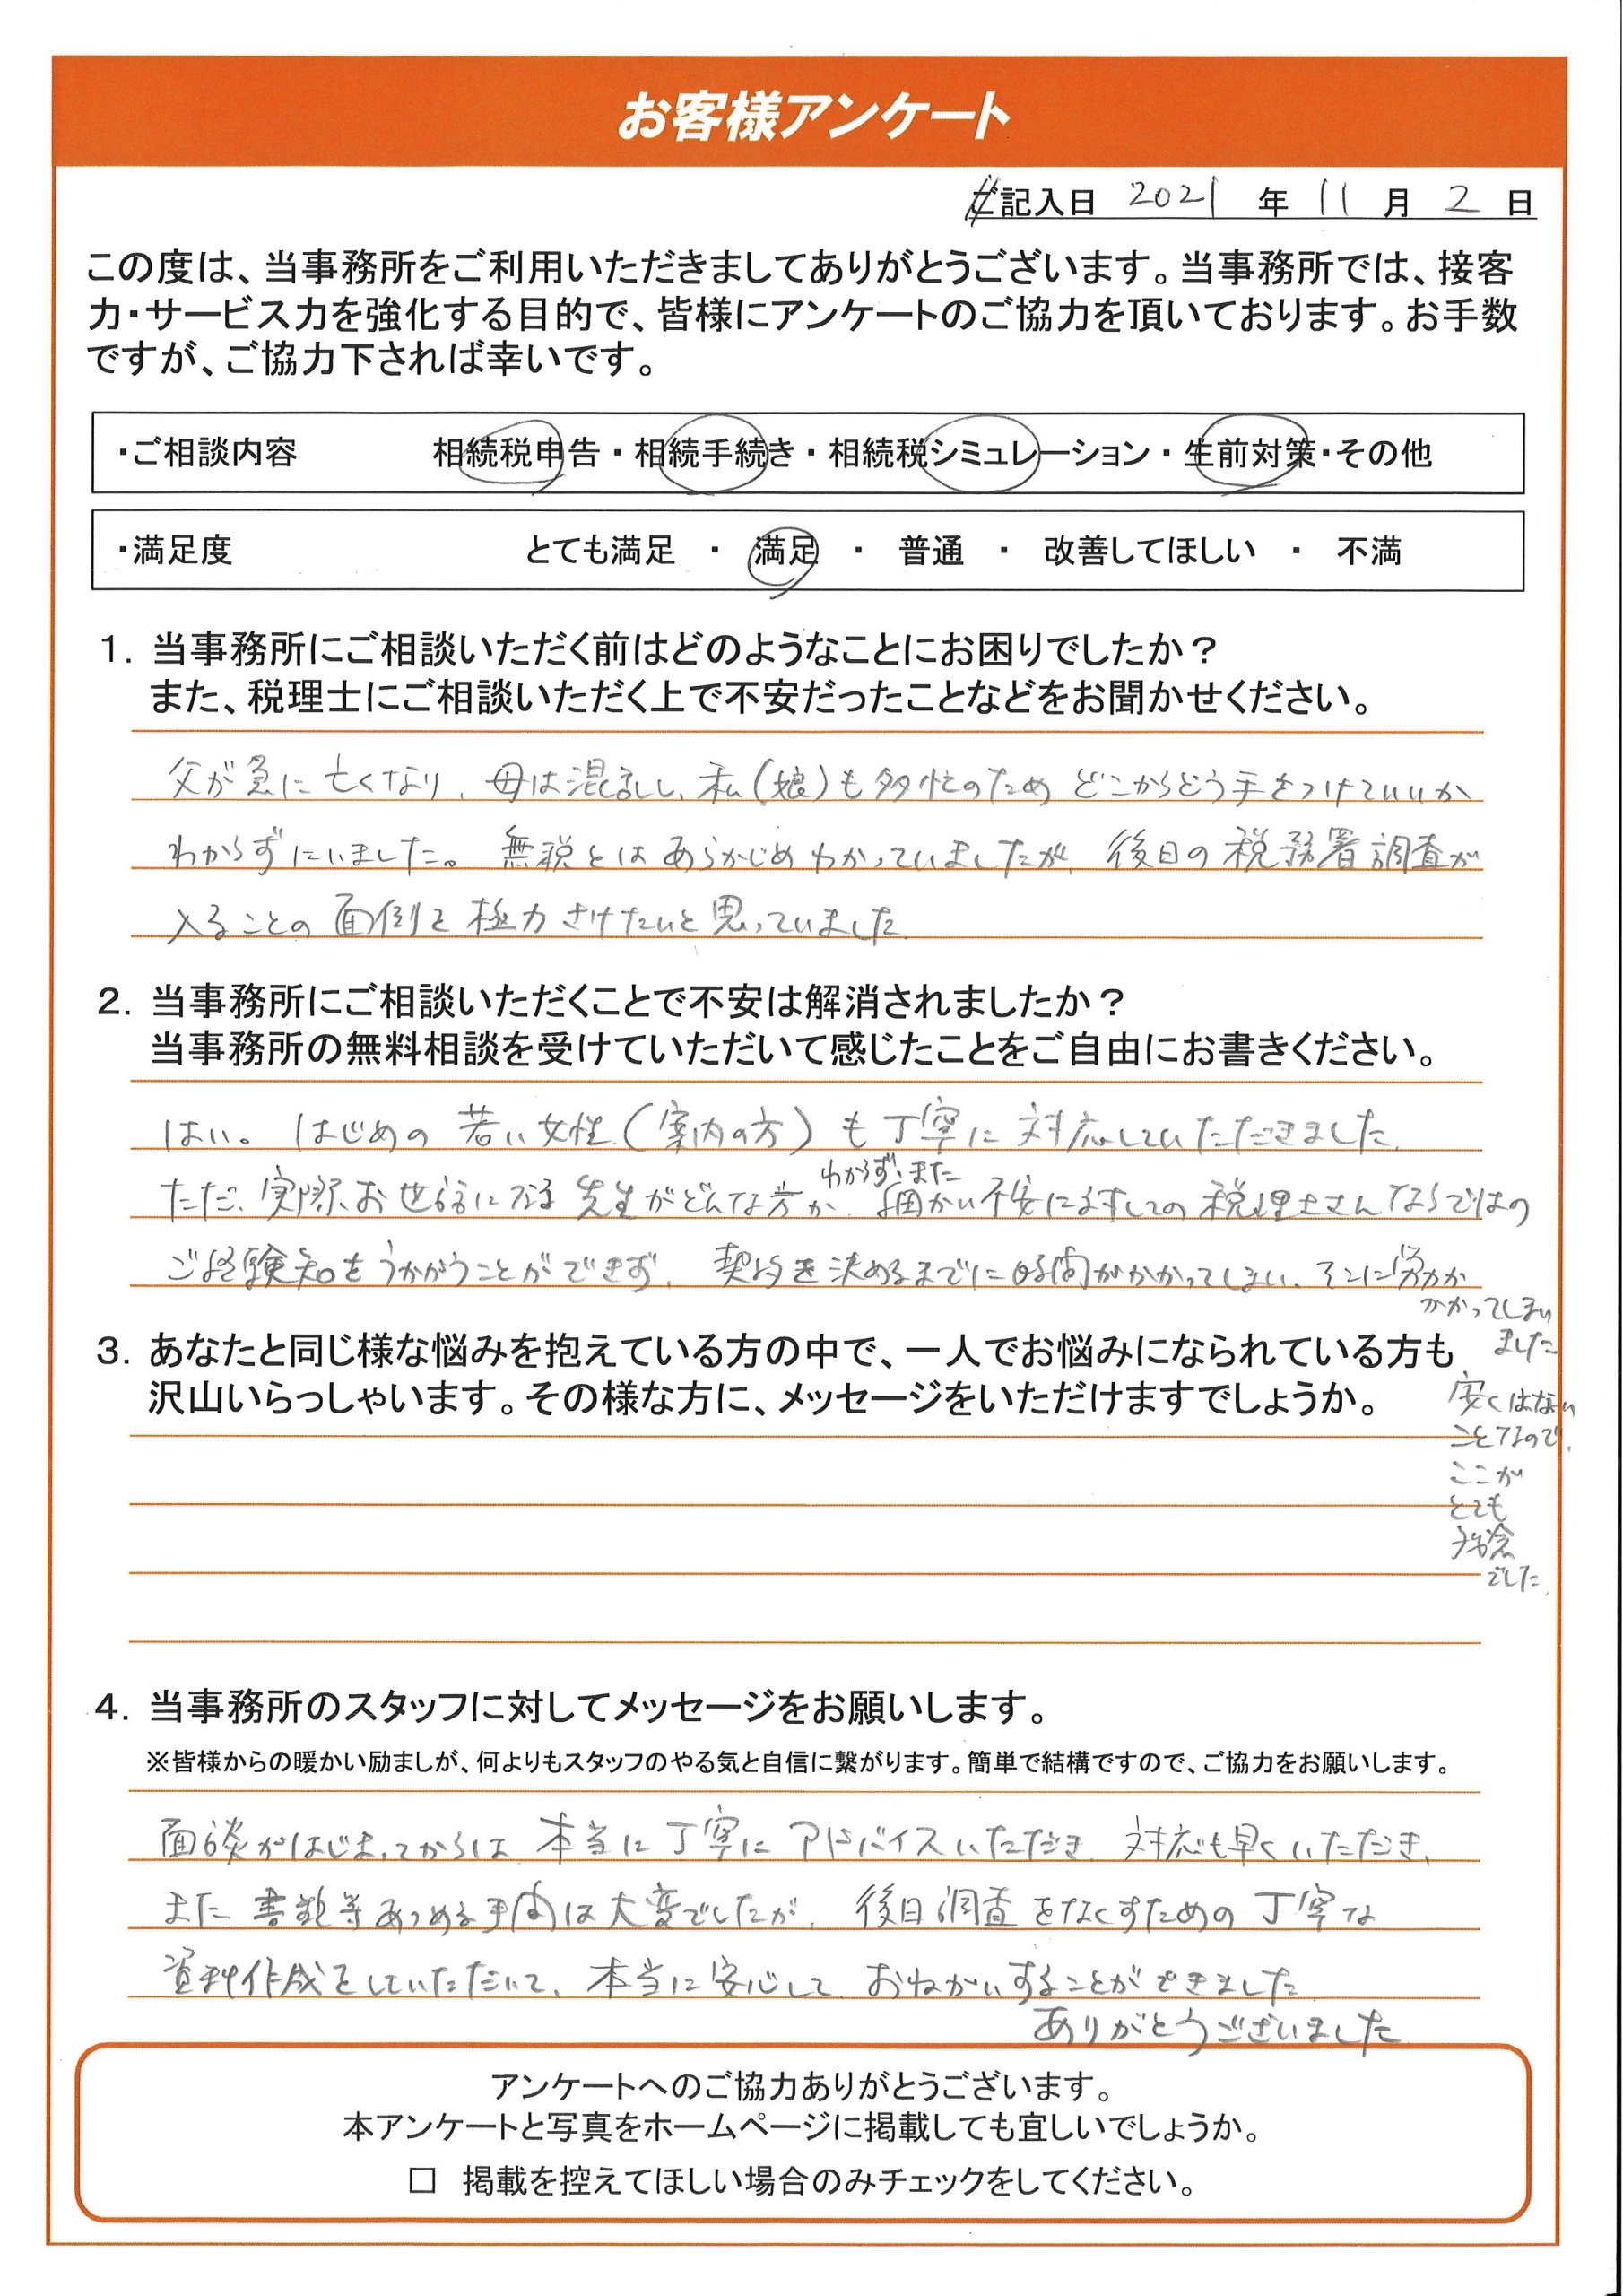 お客様アンケート
ご記入日 2021 年 11 月 2 日
この度は、当事務所をご利用いただきましてありがとうございます。当事務所では、接客
力・サービス力を強化する目的で、皆様にアンケートのご協力を頂いております。お手数
ですが、ご協力下されば幸いです。
・ご相談内容 相続税申告・相続手続き・相続税シミュレーション・生前対策・その他
・満足度 とても満足 ・ 満足 ・ 普通 ・ 改善してほしい ・ 不満
1. 当事務所にご相談いただく前はどのようなことにお困りでしたか?
また、税理士にご相談いただく上で不安だったことなどをお聞かせください。
父が急に亡くなり、母は混乱し、私(娘)も多忙のため どこからどう手をつけていいか
わからずにいました。 無税とはあらかじめわかっていましたが、後日の税務署調査が
入ることの面倒を極力さけたいと思っていました。
2. 当事務所にご相談いただくことで不安は解消されましたか?
当事務所の無料相談を受けていただいて感じたことをご自由にお書きください。
はい。 はじめの 若い女性(案内の方)も丁寧に対応していただきました。
ただ、実際お世話になる先生がどんな方か わからず、また 細かい不安に対しての税理士さんならではの
ご経験知をうかがうことができず、契約を決めるまでに時間がかかってしまい、そこに労力が
かかってしまい
ました
安くはない
ことなので、
ここが
とても
残念
でした。
3. あなたと同じ様な悩みを抱えている方の中で、一人でお悩みになられている方も
沢山いらっしゃいます。その様な方に、メッセージをいただけますでしょうか。
4. 当事務所のスタッフに対してメッセージをお願いします。
※皆様からの暖かい励ましが、何よりもスタッフのやる気と自信に繋がります。簡単で結構ですので、ご協力をお願いします。
面談がはじまってからは 本当に丁寧に アドバイスいただき、対応も早くいただき、
また 書類等あつめる手間は大変でしたが、後日調査をなくすための丁寧な
資料作成をしていただいて、本当に安心して おねがいすることができました
ありがとうございました
アンケートへのご協力ありがとうございます。
本アンケートと写真をホームページに掲載しても宜しいでしょうか。
□ 掲載を控えてほしい場合のみチェックをしてください。